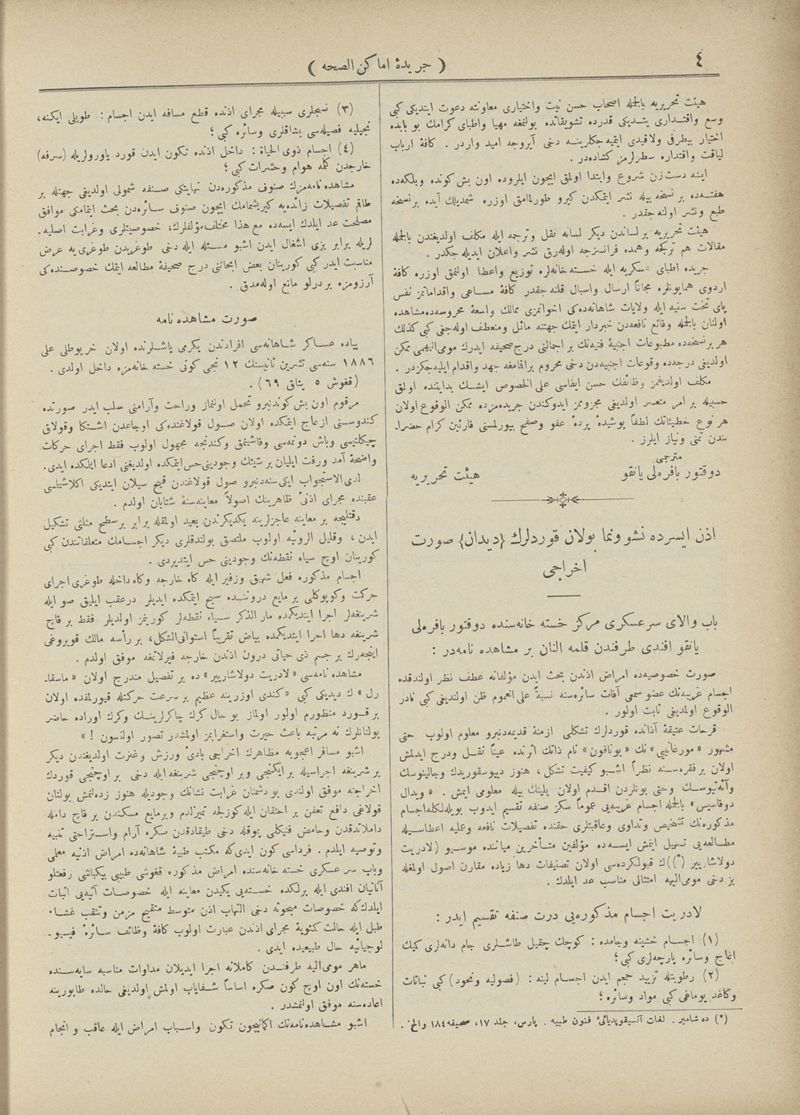 ٤
( جريدۀ اماكن الصحه )
هيئت تحريريه بالجمله اصحاب حسن نيت واختياری معاونته دعوت ايتديكی كبی
وسع واقتداری يتديكی قدرده تشويقاتده بولنمغه مهيا واطبای كرامك بو بابده
اختيار بيطرفی ولاقيدی ايتميه جكلرينه دخی آيروجه اميد واردر . كافۀ ارباب
لياقت واقتداره سطرلرمز كشاده در .
اينه دست زن شروع وابتدا اولمق ايچون ايلروده اون بش كونده وبلكه ده
هفته ده بر نسخه بيله نشر ايتمكدن كيرو طورلمامق اوزره شمديلك آيده بر نسخه
طبع ونشر اولنه جقدر .
هيئت تحريريه بر لساندن ديكر لسانه نقل وترجمه ايله مكلف اولديغندن بالجمله
مقالات هم تركجه وهمده فرانسزجه اوله رق نشر واعلان ايديله جكدر .
جريده اطبای عسكريه ايله خسته خانه لره توزيع واعطا اولنمق اوزره كافۀ
اردوی همايونلره مجاناً ارسال واسبال قلنه جقدر كافۀ مساعی واقداماتمز نفس
پای تخت سنيه ايله ولايات شاهانه ده كی اخوانمزی ممالك واسعۀ محروسه ده مشاهده
اولنان بالجمله وقائع نافعه دن خبردار ايتمك جهتنه مائل ومنعطف اوله جغی كبی كذلك
هر برنسخه ده مطبوعات اجنبيۀ فنيه نك بر اجمالنی درج صحيفه ايدرك مومی اليهمی ممكن
اولديغی درجه ده وقوعات اجنبيه دن دخی محروم براقمامغه جهد واقدام ايليه جكزدر .
مكلف اولديغمز وظائفك حسن ايفاسی علی الخصوص ايشك بدايتنده اولمق
حسبيله بر امر متعسر اولديغی مجزومز ايدوكندن جريده مزده ممكن الوقوع اولان
هر نوع خطيئاتك لطفاً پوشيدۀ پردۀ عفو وصفح بيورلمسنی قارئين كرام حضرا-
تندن تمنی ونياز ايلرز .
مترجمی
دوقتور بافره لی يانقو
هيئت تحريريه
اذن ايسرده نشو ونما بولان قوردلرك {ديدان} صورت
اخراجی
باب والای سرعسكری مركز خسته خانه سنده دوقتور بافره لی
يانقو افندی طرفندن قلمه النان بر مشاهده نامه در :
صورت خصوصيه ده امراض اذندن بحث ايدن مؤلفاته عطف نظر اولندقده
اجسام غريبه نك عضو سمعی آفات سائره سنه نسبةً علی العموم ظن اولنديغی كبی نادر
الوقوع اولمديغی ثابت اولور .
قرحات عتيقۀ آذانده قوردلرك تشكلی ازمنۀ قديمه دنبرو معلوم اولوب حتی
مشهور «مورغانيی» نك «بونافون» نام ذاتك اثرنده عيناً نقل ودرج ايدلمش
اولان بر فقره سنه نظراً اشبو كيفيت تشكل ، هنوز ديوسقوريدك وجالينوسك
وآئه تيوسك وحتی بونلردن اقدم اولان پلينك بيله معلومی ايمش . «ويدال
دوقاسيس» بالجمله اجسام غريبه يی عموماً سكز صنفه تقسيم ايدوب بويله لكله اجسام
مذكوره نك تشخيص وتداوی وعاقبتلری حقنده تفصيلات نافعه وعليه اعطاسيله
مطالعه يی تسهيل ايتمش ايسه ده مؤلفين متأخرين مياننده موسيو (لادريت
دولاشاريير (*))ك قبولكرده سی اولان تصنيفات دها زياده مقارن اصول اولمغله
بز دخی مومی اليهه امتثالی مناسب عد ايلدك .
لادريت اجسام مذكوره يی درت صنفه تقسيم ايدر :
(١) اجسام خشينه وجامده : كوچك چقيل طاشلری جام دانه لری كيك
اغاج وسائره پارچه لری كبی ؛
(٢) رطوبتله تزييد حجم ايدن اجسام لينه : (فصوليه ونخود) كبی نباتات
وكاغد يوماغی كبی مواد وسائره ؛
(*) ده شامبر . لغات آنسيقلوپديائۀ فنون طبيه . پارس، جلد ١٧، صحيفه ١٨٤ والخ .
(٣) نسجلری سبيله مجرای اذنده قطع مسافه ايدن اجسام : طوبلی ايكنه،
نجيليه فصيله سی بشاقلری وسائره كبی ؛
(٤) اجسام ذوی الحياة : داخل اذنده تكون ايدن قورد ياوروليله (سرفه)
خارجدن كلمه هوام وحشرات كبی ؛
مشاهده نامه مزك صنوف مذكوره دن نهايتكی صنفه شمولی اولديغی جهتله بر
طاقم تفصيلات زائده يه كيريشمامك ايچون صنوف سائره دن بحث ايتمامكی موافق
مصلحت عد ايلدك ايسه ده مع هذا مختلف مؤلفلرك، خصوصيتلری وغرابت اصليه .
لريله برابر بزی اشغال ايدن اشبو مسئله ايله دخی طوغريدن طوغری يه عرض
مناسبت ايدر كبی كورينان بعض ابحاثنی درج صحيفۀ مطالعه ايتمك خصوصنده كی
آرزومزه بردرلو مانع اوله مدق .
صورت مشاهده نامه
پياده عساكر شاهانه سی افرادندن يكرمی ياشلرنده اولان خربوطلی علی
١٨٨٦ سنه سی تشرين ثانيسنك ١٢ نجی كونی خسته خانه مزه داخل اولدی .
(قغوش ٥ يتاق ٦٩) .
مرقوم اون بش كوندنبرو تحمل اولنماز وراحت وآرامنی سلب ايدر صورتده
كندوسنی ازعاج ايتمكده اولان صول قولاغنده كی اوجاعدن اشتكا وقولاق
چيكلتيسی وباش دونمه سی وقاشنمق وكندنجه مجهول اولوب فقط اجرای حركات
واضحۀ آمد ورفت ايليان بر شيئك وجودينی حس ايتمكده اولديغنی ادعا ايلكده ايدی.
لدی الاستجواب ايكی سنه دنبرو صول قولاغندن قيح سيلان ايتديكی اكلاشيلسی
عقبنده مجرای اذنی ظاهرينك اصولاً معاينه سنه شتابان اولدم .
دقتليجه بر معاينه عاجزلرينه يكديكرندن بعيد اولمقله برابر برسطح مثلثی تشكيل
ايدن ، وقليل الرؤيه اولوب ملتصق بولندقلری ديكر اجسامك متعلقاتندن كبی
كورينان اوچ سياه نقطه نك وجودينی حس ايتديردی .
اجسام مذكوره فعل شهيق وزفير ايله كاه خارجه وكاه داخله طوغری اجرای
حركت وكوپوكلی بر مايع دروننده سبح ايتمكده ايديلر درعقب ايليق صو ايله
شرينغه لر اجرا ايتديكمده مار الذكر سياه نقطه لر كورنمز اولديلر فقط بر قاچ
شرينغه دها اجرا ايتديكمده بياض تقريباً استوانی الشكل، بر رأسه مالك قويروغی
اينجه رك بر جسم ذی حياتی درون اذندن خارجه فيرلاتمغه موفق اولدم .
مشاهده نامه سی «لادريت دولاشاريير» ده بر تفصيل مندرج اولان «ماسقا-
رل» ك ديديكی كبی «كندی اوزرينه عظيم بر سرعت حركتله قيورلمقده اولان
برقورد منظورم اولور اولماز بو حال كرك چاكرلرينك وكرك اوراده حاضر
بولنانلرك نه مرتبه باعث حيرت واستغرابمز اولمشدر تصور اولنسون ! »
اشبو مسافر اعجوبه مظاهرك اخراجی بادئ ورزش وغيرت اولديغندن ديكر
بر شرينغه اجراسيله بر ايكنجی وبر اوچنجی شرينغه ايله دخی بر اوچنجی قوردك
اخراجنه موفق اولدی بو دشمنان غرابت نشانك وجوديله هنوز زده لنمش بولنان
قولاغی دافع تعفن بر احتقان ايله كوزلجه تميزلدم وبرمايع مسكندن بر قاچ دامله
داملاتدقدن وحامض فنيكلی پنوقله دخی طيقادقدن سكره آرام واستراحتی تنبيه
وتوصيه ايلدم . فرداسی كون ايدی كه مكتب طبيۀ شاهانه ده امراض اذنيه معلمی
وباب سر عسكری خسته خانه سنده امراض مذكوره قغوشی طبيبی بيكباشی رفعتلو
آنانيان افندی ايله برلكده خسته يی يكيدن معاينه ايله خصوصات آتيه يی اثبات
ايلدك كه خصوصات مبحوثه دخی التهاب اذن متوسط متقيح مزمن وتثقب غشاء
طبل ايله حالت كئوبۀ مجرای اذندن عبارت اولوب كافۀ وظائف سائرۀ فيسيو-
لوجيائيه حال طبيعيده ايدی .
ماهر مومی اليه طرفندن كاملانه اجرا ايديلان مداوات مناسبه سايه سنده
خسته نك اون اوچ كون صكره اساساً شفاياب اولمش اولديغی حالده طابورينه
اعاده سنه موفق اولنمشدر .
اشبو مشاهده نامه نك اكمالنيچون تكون واسباب امراض ايله عاقب و انجام